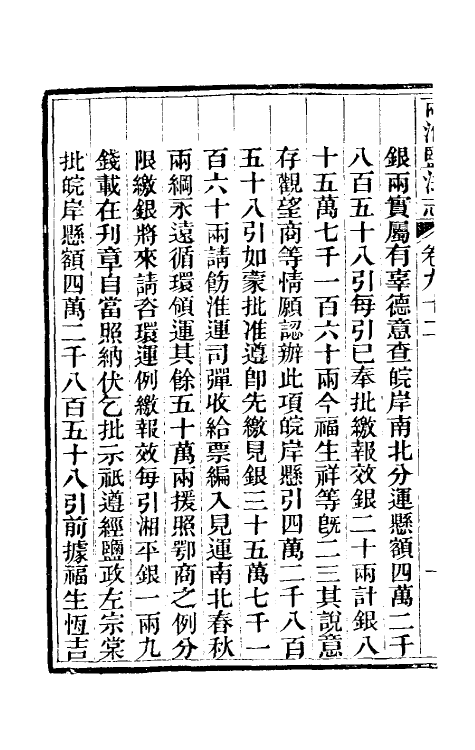 兩淮鹽法志 卷九十二
銀兩實屬有辜德意查皖岸南北分運懸額四萬二千
八百五十八引每引已奉批繳報效銀二十兩計銀八
十五萬七千一百六十兩今福生祥等旣二三其說意
存觀望商等情願認辦此項皖岸懸引四萬二千八百
五十八引如蒙批准遵卽先繳見銀三十五萬七千一
百六十兩請飭淮運司彈收給票編入見運南北春秋
兩綱永遠循環領運其餘五十萬兩援照鄂商之例分
限繳銀將來請咨環運例繳報效每引湘平銀一兩九
錢載在刊章自當照納伏乞批示祇遵經鹽政左宗棠
批皖岸懸額四萬二千八百五十八引前據福生恆吉